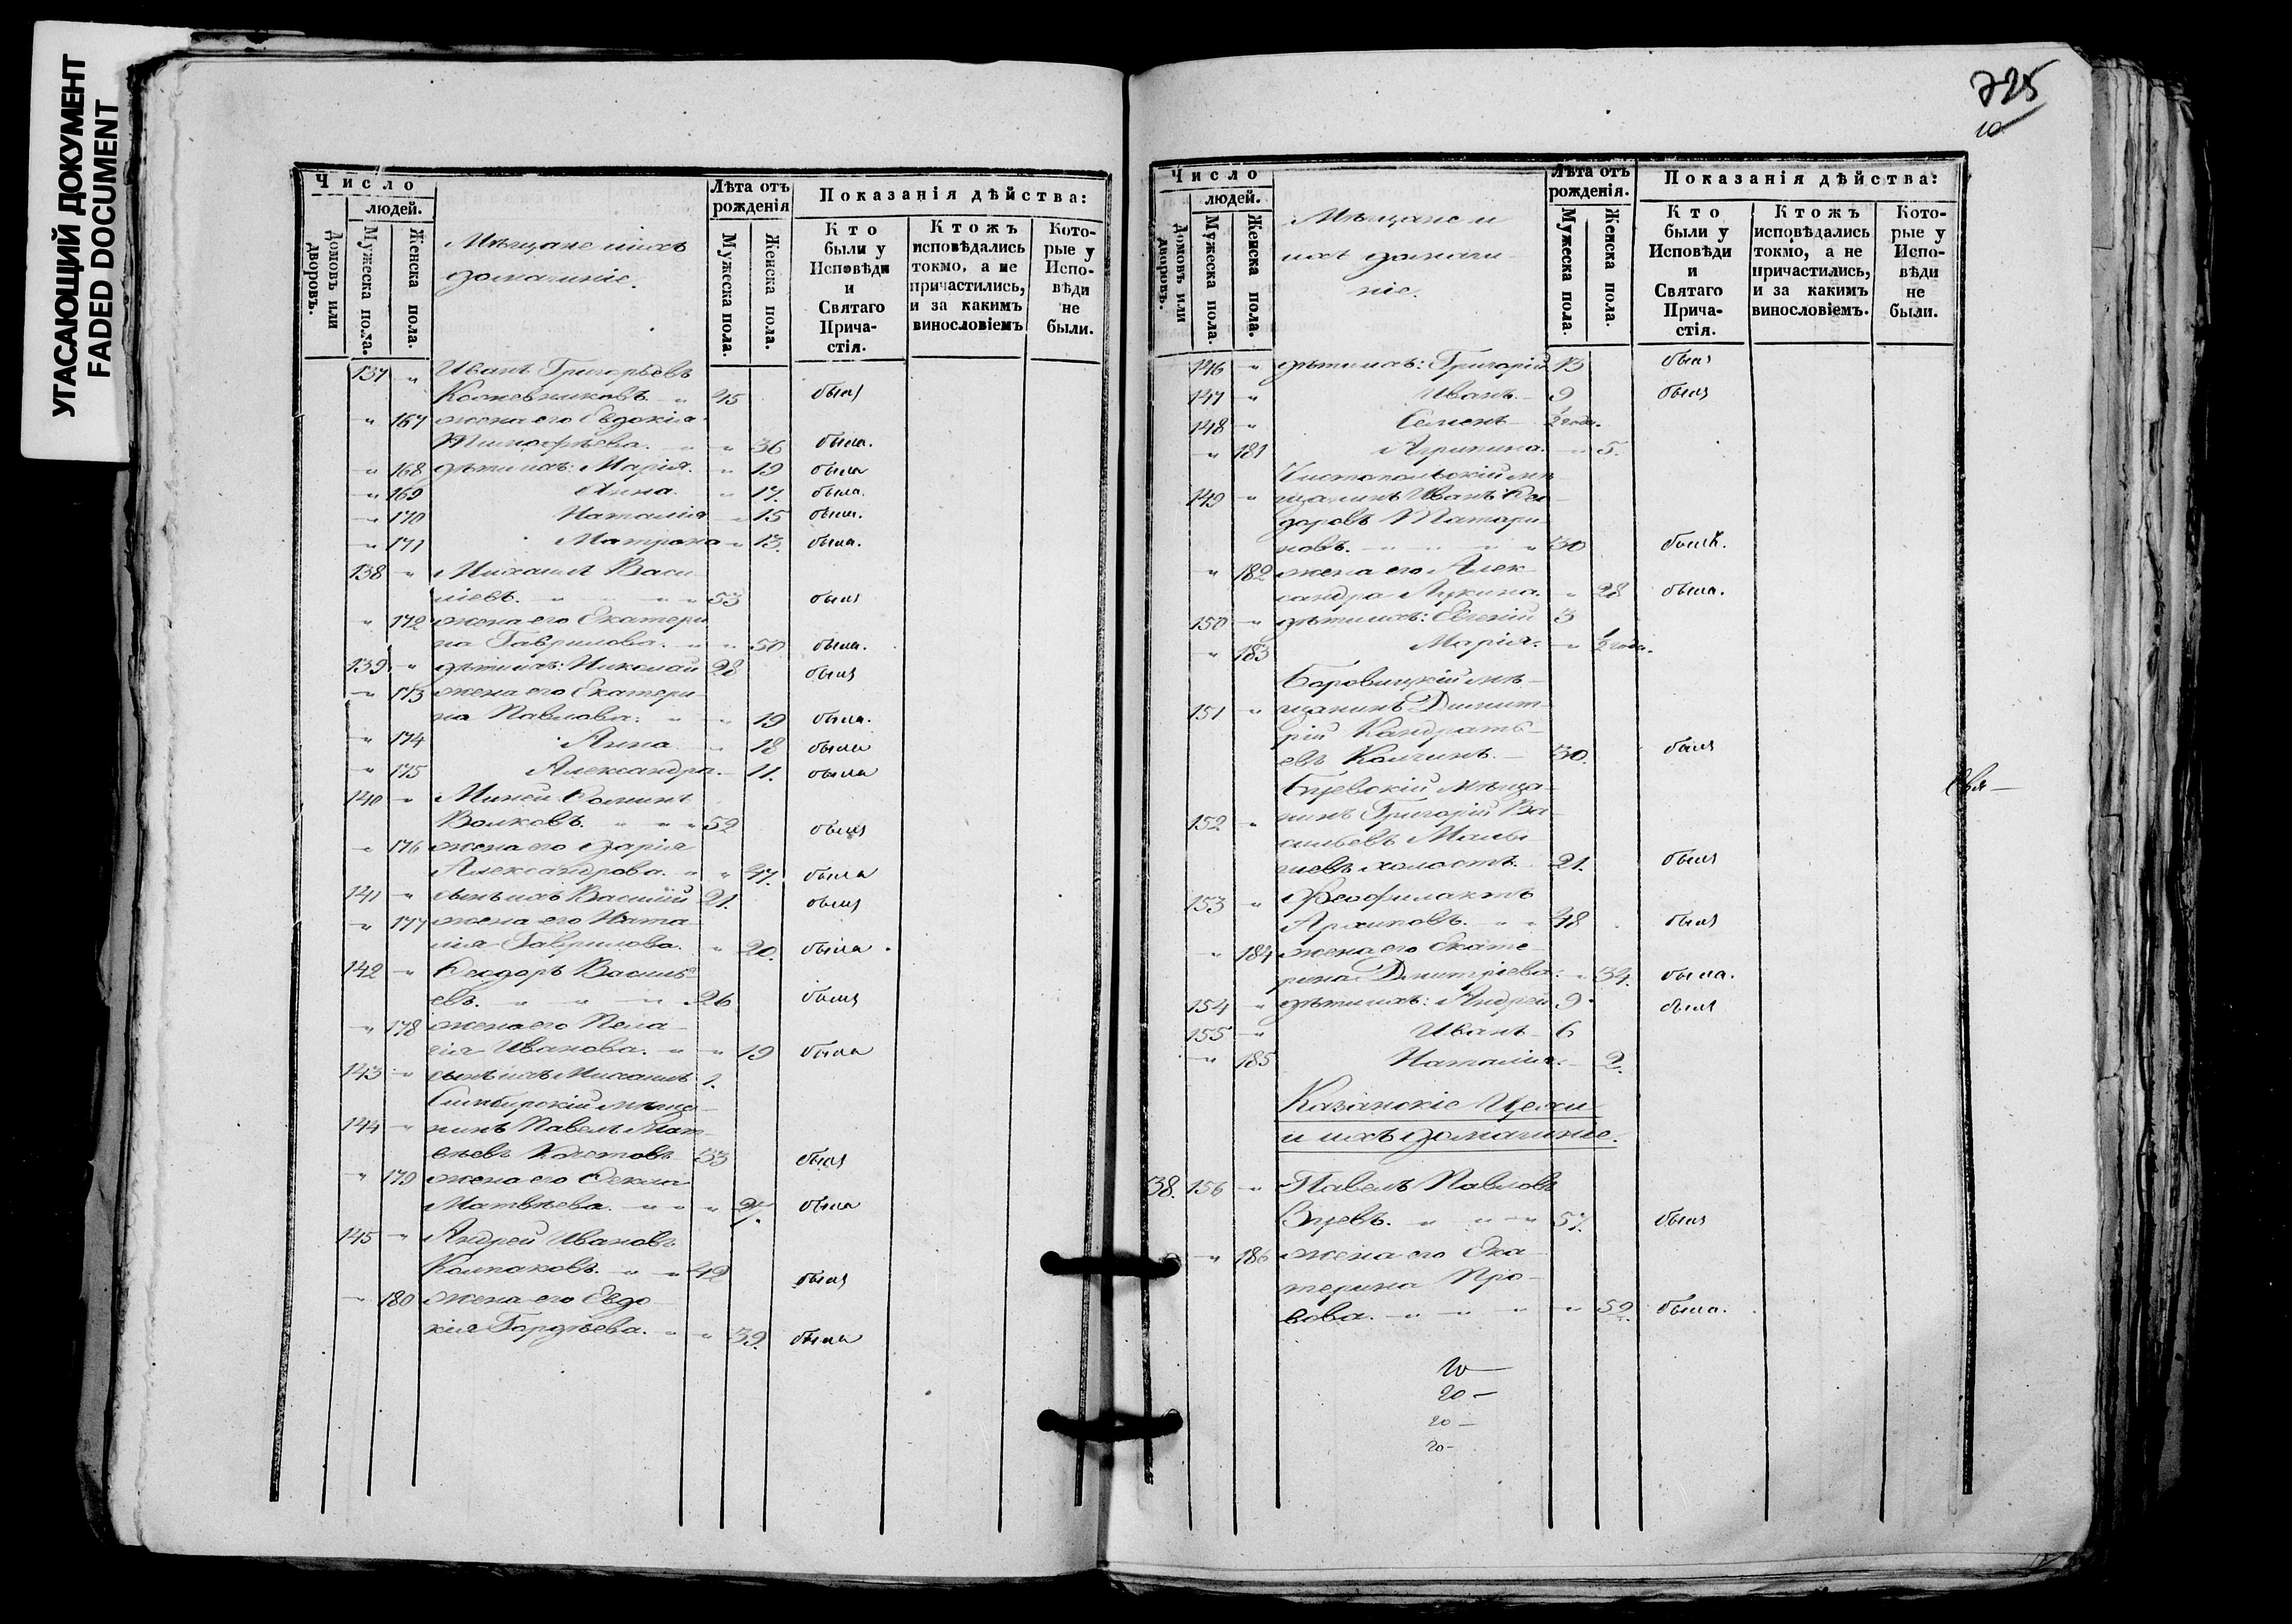 УГАСАЮЩИЙ ДОКУМЕНТ
FADED DOCUMENT
Число
людей.
Домовъ или дворовъ.
Мужеска пола.
Женска пола.
Мѣщане и ихъ
домашніе.
Лѣта отъ рожденія
Мужеска пола.
Женска пола.
Показанія дѣйства:
Кто были у Исповѣди и Святаго Прича-стія.
Ктожъ исповѣдались токмо, а не причастились, и за какимъ винословіемъ
Кото-рые у Испо-вѣди не были.
137 " Иванъ Григорьевъ
Кожевниковъ. " 45 былъ
" 167 жена его Евдокія
Тимофѣева. " " 36 была.
" 168 дѣти ихъ: Марія. " 19 была
" 169 Анна. " 17. была.
" 170 Наталія " 15 была.
" 171 Матрона " 13. была.
138 " Михаилъ Васи-
ліевъ. " " " " 53 былъ
" 172 жена его Екатери
на Гаврилова. " " 50 была.
139 " дѣти ихъ: Николай 28 былъ
" 173 жена его Екатери-
на Павлова. " " 19 была.
" 174 Анна " 18 была
" 175 Александра. " 11. была
140 " Миней
Волковъ. " " " 52 былъ
" 176 жена его Дарія
Александрова. " " 47. была
141 " сынъ ихъ Василій 21. былъ
" 177 жена его Ната
лія Гаврилова. " 20. была.
142 " Ѳеодоръ Василь-
евъ. " " " " 26 былъ
" 178 жена его Пела-
гія Иванова. " " 19 была
143 " сынъ ихъ Михаилъ 1.
Симбирскій мѣща-
144 " нинъ Павелъ Мат-
вѣевъ 33 былъ
" 179 жена его Ѳекла
Матвѣева. " " " 27. была
145 " Андрей Ивановъ
Колпаковъ. " " 42 былъ
" 180 жена его Евдо-
кія Гордѣева. " " 39. была
725
10
Число
людей.
Домовъ или дворовъ.
Мужеска пола.
Женска пола.
Мѣщане и
ихъ домаш-
ніе.
Лѣта отъ рожденія.
Мужеска пола.
Женска пола.
Показанія дѣйства:
Кто были у Исповѣди и Святаго Прича-стія.
Ктожъ исповѣдались токмо, а не причастились, и за какимъ винословіемъ.
Кото-рые у Испо-вѣди не были.
146 " дѣти ихъ: Григорій 13 былъ
147 " Иванъ. 9 былъ
148 " Семенъ ½ года.
" 181 Агрипина. " 5.
Чистопольскій мѣ
149 " щанинъ Иванъ Ѳео-
доровъ Татари-
новъ. " " " " 30 былъ.
" 182 жена его Алек-
сандра Лукина. " 28 была.
150 " дѣти ихъ: Евгеній 3
" 183 Марія. " ½ года.
Боровицкій мѣ-
151 " щанинъ Димит-
рій Кондрать-
евъ 30. былъ
мѣща-
152 " нинъ Григорій Ва-
сильевъ Малы-
шевъ холостъ. 21. былъ
153 " Ѳеофилактъ
Архиповъ. " " 48 былъ
" 184 жена его Екате-
рина Дмитріева. " 34. была.
154 " дѣти ихъ: Андрей 9 былъ
155 " Иванъ 6
" 185 Наталія. 2.
Казанскіе Цехи
и ихъ домашніе.
38. 156 " Павелъ Павловъ
" " " 57. былъ
" 186 жена его Ека-
терина Про-
вова. " " " " 52. была.
20 —
20 —
20 —
20 —